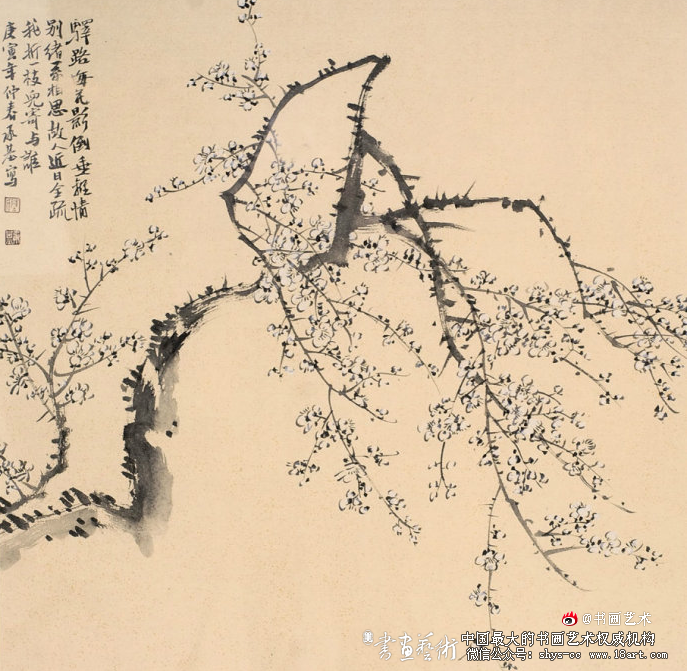 驛路每花影倒垂離情
别緒系相思故人近日全疏
我折一枝兒寄与誰
庚寅年仲春承寫
@书画艺术
書畫藝術
中国最大的书画艺术权威机构
微信公众号: shys-cc www.18art.com